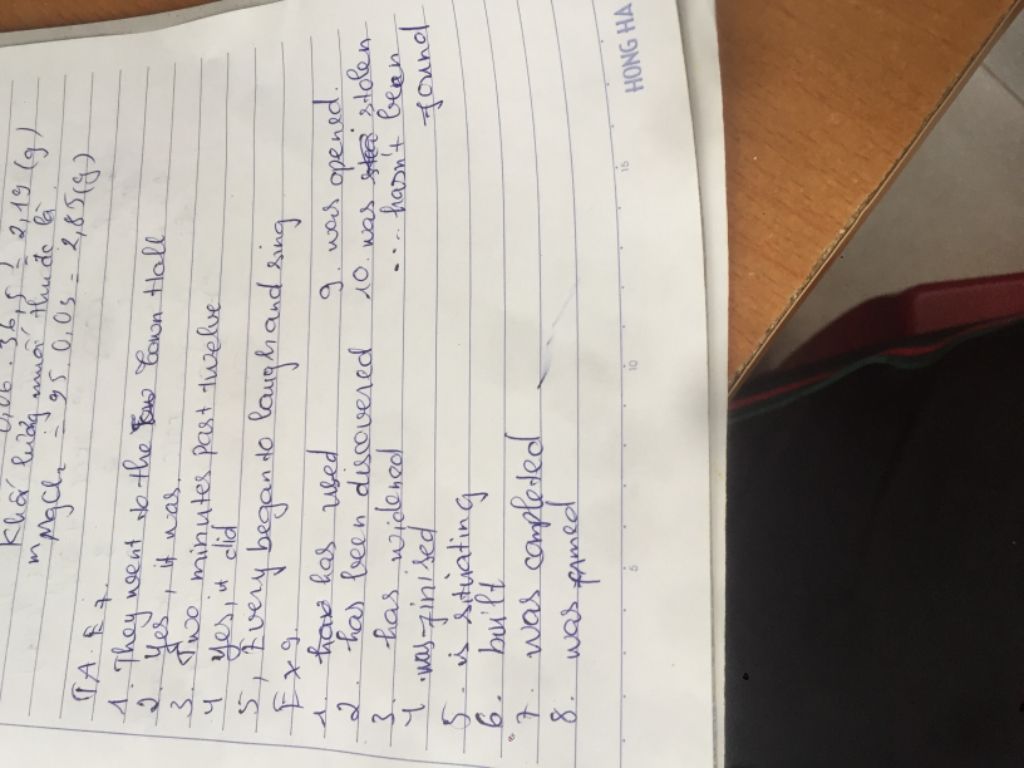 0,06 . 36,5 = 2,19 (g)
Khối lượng muối thu được là
m MgCl₂ = 95 . 0,03 = 2,85(g)
TA. E 7.
1. They went to the Town Hall
2. Yes, it was.
3. Two minutes past twelve
4 Yes, it did
5, Every began to laugh and sing
Ex 9.
1. has used
2. has been discovered
3. has widened
4. was finised
5. is situating
6. built
7. was completed
8. was
9. was opened.
10. was stolen
... hasn't been
found
HONG HA
5 10 15